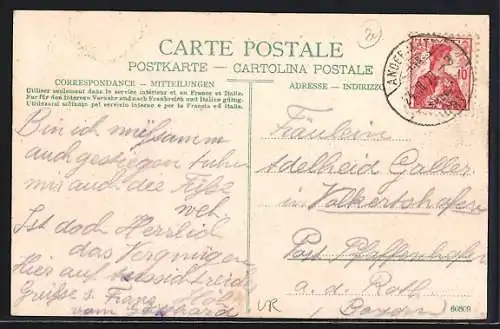 CARTE POSTALE
POSTKARTE - CARTOLINA POSTALE
CORRESPONDANCE - MITTEILUNGEN
Utiliser seulement dans le service intérieur et en France et Italie.
Nur für den Internen Verkehr und nach Frankreich und Italien gültig.
ADRESSE - INDIRIZZO
HELVETIA
10
Bin ich mühsamm
auch gestiegen tuhen
mir auch die Füße
weh,
Ist doch Herrlich
das Vergnügen
Hier auf
Grüße s. Franz
vom Gotthard
Fräulein
Adelheid Galler
in Volkertshofen
Post Pfaffenhofen
a. d. Roth
(Bayern)
VR
60809